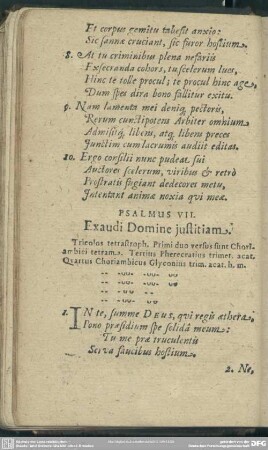 Et corpus gemitu tabesit anxio:
Sic sannæ cruciant, sic furor hostium.
8. At tu criminibus plena nefariis
Exsecranda cohors, tu scelerum lues,
Hinc te tolle procul; te procul hinc age,
Dum spes dira bono fallitur exitu.
9. Nam lamenta mei deniq; pectoris,
Rerum cunctipotens Arbiter omnium
Admisitq; libens, atq; libens preces
Junctim cum lacrumis audiit editas.
10. Ergo consilii nunc pudeat sui
Auctores scelerum, viribus & retrò
Prostrati fugiant dedecores metu,
Intentant animæ noxia qui meæ.
PSALMUS VII.
Exaudi Domine justitiam.
Tricolos tetrastroph. Primi duo versus sunt Chori-
ambici tetram. Tertius Pherecratius trimet. acat.
Quartus Choriambicus Glyconius trim. acat. h. m.
1. IN te, summe DEUS, qui regis æthera,
Pono præsidium spe solidâ meum:
Tu me præ truculentis
Serva faucibus hostium.
2. Ne,